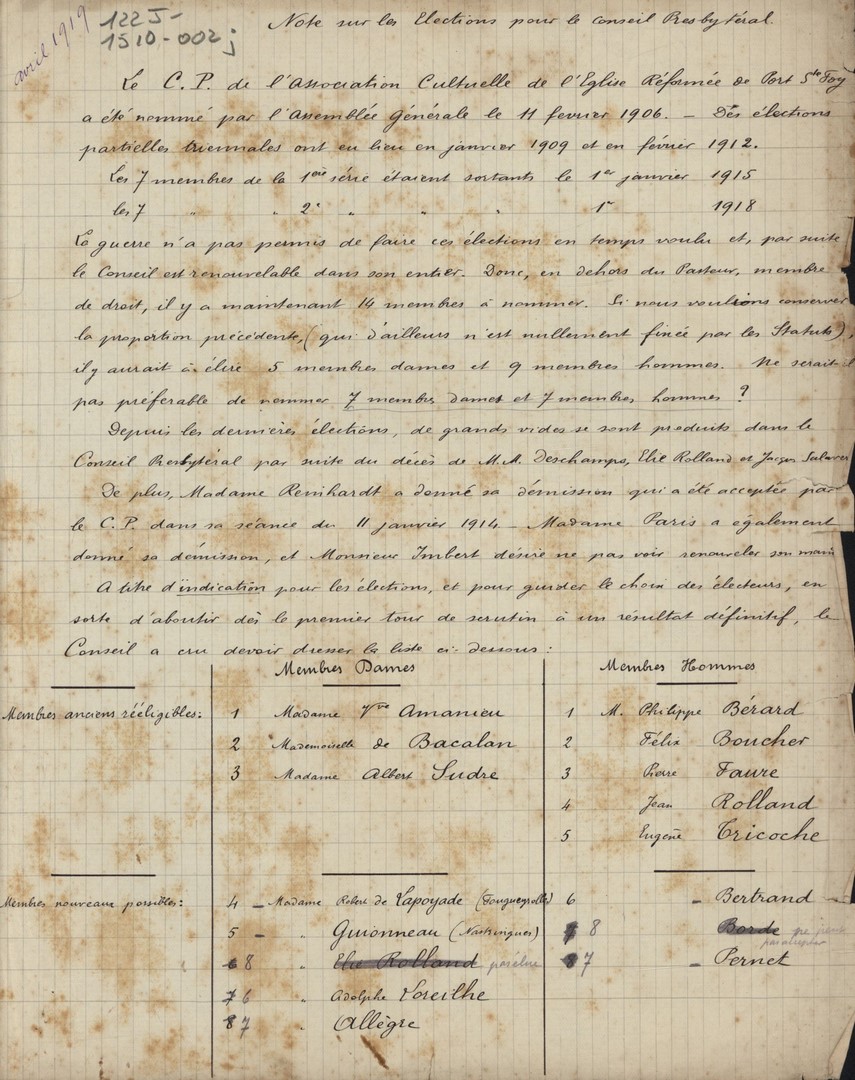 avril 1919
122J-
1510-002j
Note sur les Elections pour le conseil Presbytéral.
Le C.P. de l'Association Cultuelle de l'Eglise Réformée de Port Ste Foy
a été nommé par l'Assemblée Générale le 11 fevrier 1906. — Des élections
partielles triennales ont eu lieu en janvier 1909 et en février 1912.
Les 7 membres de la 1ère série étaient sortants le 1er janvier 1915
les 7 " " 2e " " " 1er 1918
La guerre n'a pas permis de faire ces élections en temps voulu et, par suite
le Conseil est renouvelable dans son entier. Donc, en dehors du Pasteur, membre
de droit, il y a maintenant 14 membres à nommer. Si nous voulions conserver
la proportion précédente, (qui d'ailleurs n'est nullement fixée par les Statuts),
il y aurait à élire 5 membres dames et 9 membres hommes. Ne serait-il
pas préférable de nommer 7 membres dames et 7 membres hommes ?
Depuis les dernières élections, de grands vides se sont produits dans le
Conseil Presbytéral par suite du décès de M.M. Deschamps, Elie Rolland et Jacques
De plus, Madame Reinhardt a donné sa démission qui a été acceptée par
le C.P. dans sa séance du 11 janvier 1914. — Madame Paris a également
donné sa démission, et Monsieur Imbert désire ne pas voir renouveler son
A titre d'indication pour les élections, et pour guider le choix des électeurs, en
sorte d'aboutir dès le premier tour de scrutin à un résultat définitif, le
Conseil a cru devoir dresser la liste ci-dessous :
Membres Dames
Membres Hommes
Membres anciens rééligibles:
1 Madame Vve Amanieu
2 Mademoiselle de Bacalan
3 Madame Albert Sudre
1 M. Philippe Bérard
2 Félix Boucher
3 Pierre Faure
4 Jean Rolland
5 Eugène Tricoche
Membres nouveaux possibles:
4 — Madame Robert de Lapoyade (Fougueyrolles)
5 — " Guionneau (Nastringues)
6 8 " Elie Rolland pas élue
7 6 " Adolphe Loreilhe
8 7 " Allègre
6 — Bertrand
7 8 Borde ne peut
pas accepter
8 7 — Pernet